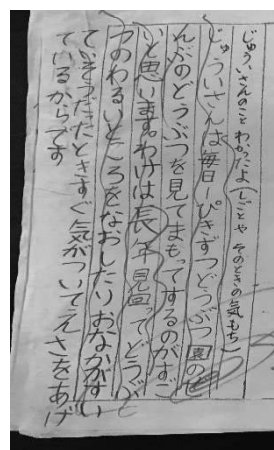 じゅういさんのことわかったよ(しごとやそのときの気もち)
じゅういさんは毎日一ぴきずつどうぶつ園の
んぶのどうぶつを見てまもってするのがすご
いと思います。わけは長年見回ってどうぶ
つのわるいところをなおしたりおなかがすい
ていそうだったときすぐ気がついてえさをあげ
ているからです